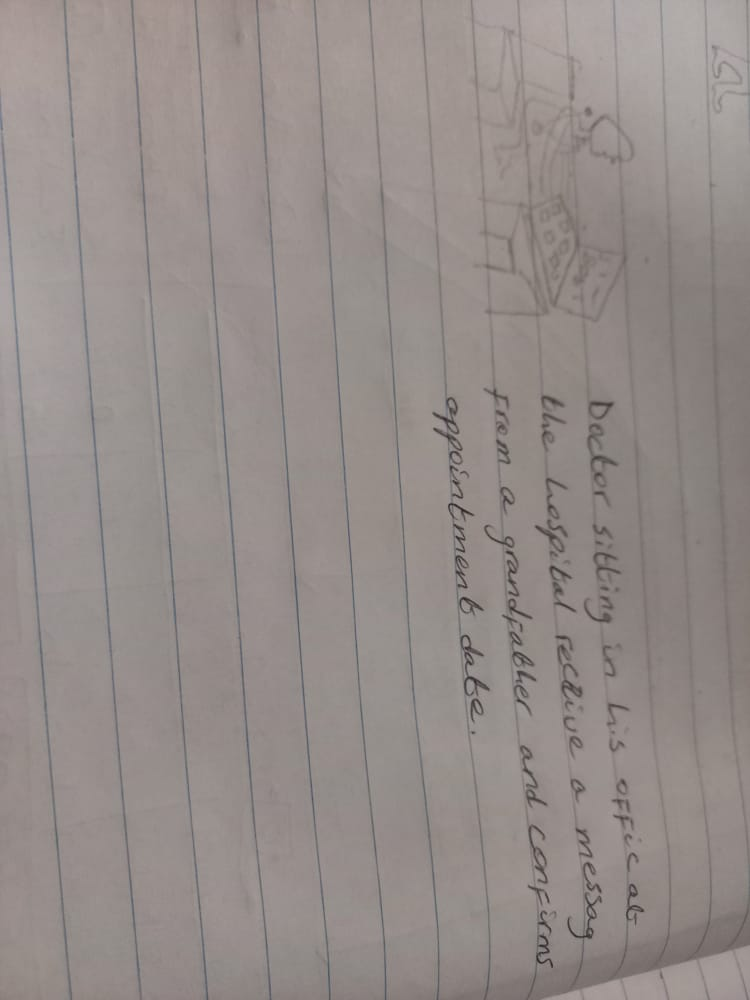 Doctor sitting in his offic at
the hospital recеive a messag
from a grandfather and confirms
appointment date.